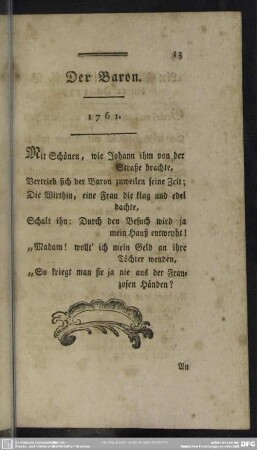 13
Der Baron.
1761.
Mit Schönen, wie Johann ihm von der
Straße brachte,
Vertrieb sich der Baron zuweilen seine Zeit;
Die Wirthin, eine Frau die klug und edel
dachte,
Schalt ihn: Durch den Besuch wird ja
mein Hauß entweyht!
„Madam! wollt' ich mein Geld an ihre
Töchter wenden,
„So kriegt man sie ja nie aus der Fran-
zosen Händen?
An
DFG